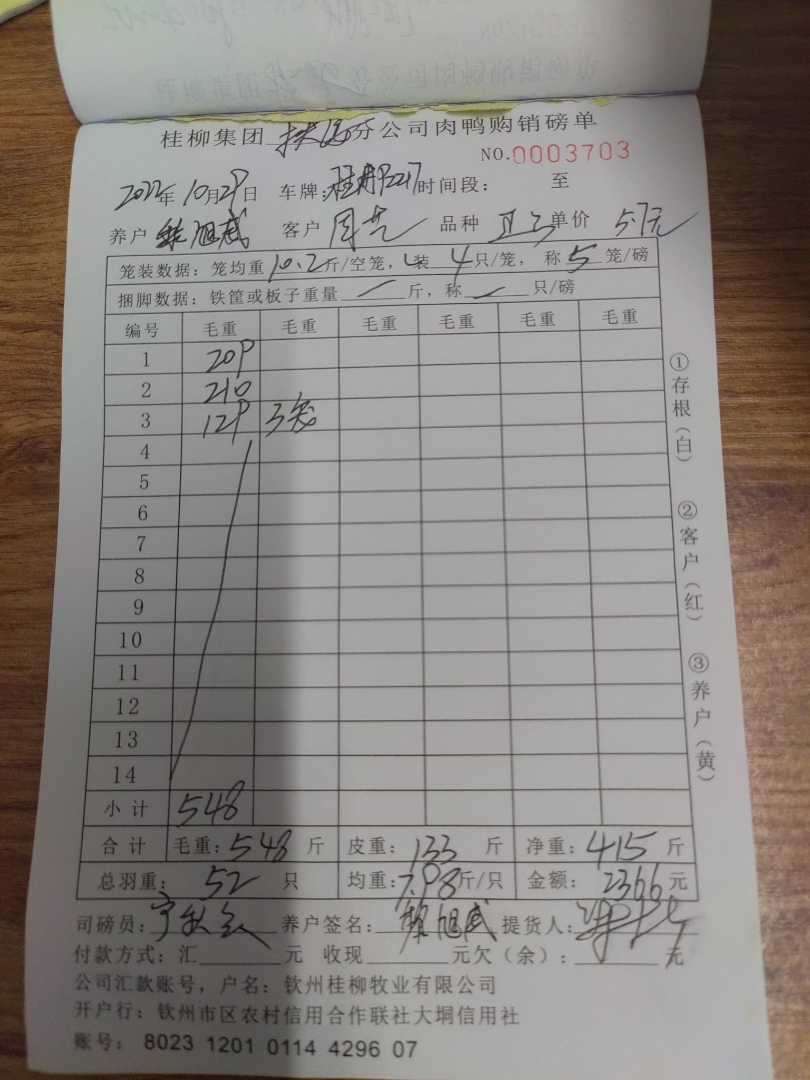 桂柳集团 分公司肉鸭购销磅单
NO.0003703
2022年10月29日 车牌: 时间段: 至
养户 旭武 客户 周艺 品种 单价 5.7元
笼装数据:笼均重10.2斤/空笼,装4只/笼,称5笼/磅
捆脚数据:铁筐或板子重量 / 斤,称 / 只/磅
编号 毛重 毛重 毛重 毛重 毛重 毛重
1 209
2 210
3 129 3笼
4
5
6
7
8
9
10
11
12
13
14
小计 548
合计 毛重:548斤 皮重:133斤 净重:415斤
总羽重:52只 均重:7.98斤/只 金额:2366元
司磅员: 养户签名: 旭武 提货人:
付款方式:汇 元 收现 元欠(余): 元
公司汇款账号,户名:钦州桂柳牧业有限公司
开户行:钦州市区农村信用合作联社大垌信用社
账号: 8023 1201 0114 4296 07
①存根(白) ②客户(红) ③养户(黄)